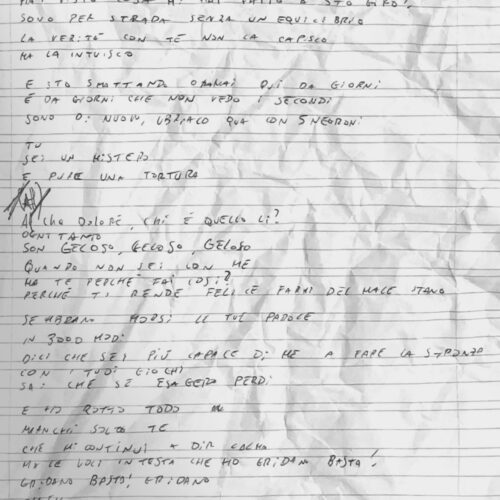 HAI VISTO COSA MI HAI FATTO A STO GIRO?
SONO PER STRADA SENZA UN EQUILIBRIO
LA VERITÀ CON TE NON LA CAPISCO
MA LA INTUISCO
E STO SMATTANDO ORMAI QUI DA GIORNI
È DA GIORNI CHE NON VEDO I SECONDI
SONO DI NUOVO, UBRIACO QUA CON 5 NEGRONI
TU
SEI UN MISTERO
E PURE UNA TORTURA
CHE DOLORE, CHI È QUELLO LÌ?
OGNITANTO
SON GELOSO, GELOSO, GELOSO
QUANDO NON SEI CON ME
MA TE PERCHÉ FAI COSÌ?
PERCHÉ TI RENDE FELICE FARMI DEL MALE STANO
SEMBRANO MORSI LE TUE PAROLE
IN 3000 MODI
DICI CHE SEI PIÙ CAPACE DI ME A FARE LA STRONZA
CON I TUOI GIOCHI
SAI CHE SE ESAGERO PERDI
E HO ROTTO TODO
MANCHI SOLO TE
CHE MI CONTINUI A DIR CALMA
MA LE VOCI IN TESTA CHE HO GRIDANO BASTA!
GRIDANO BASTA! GRIDANO